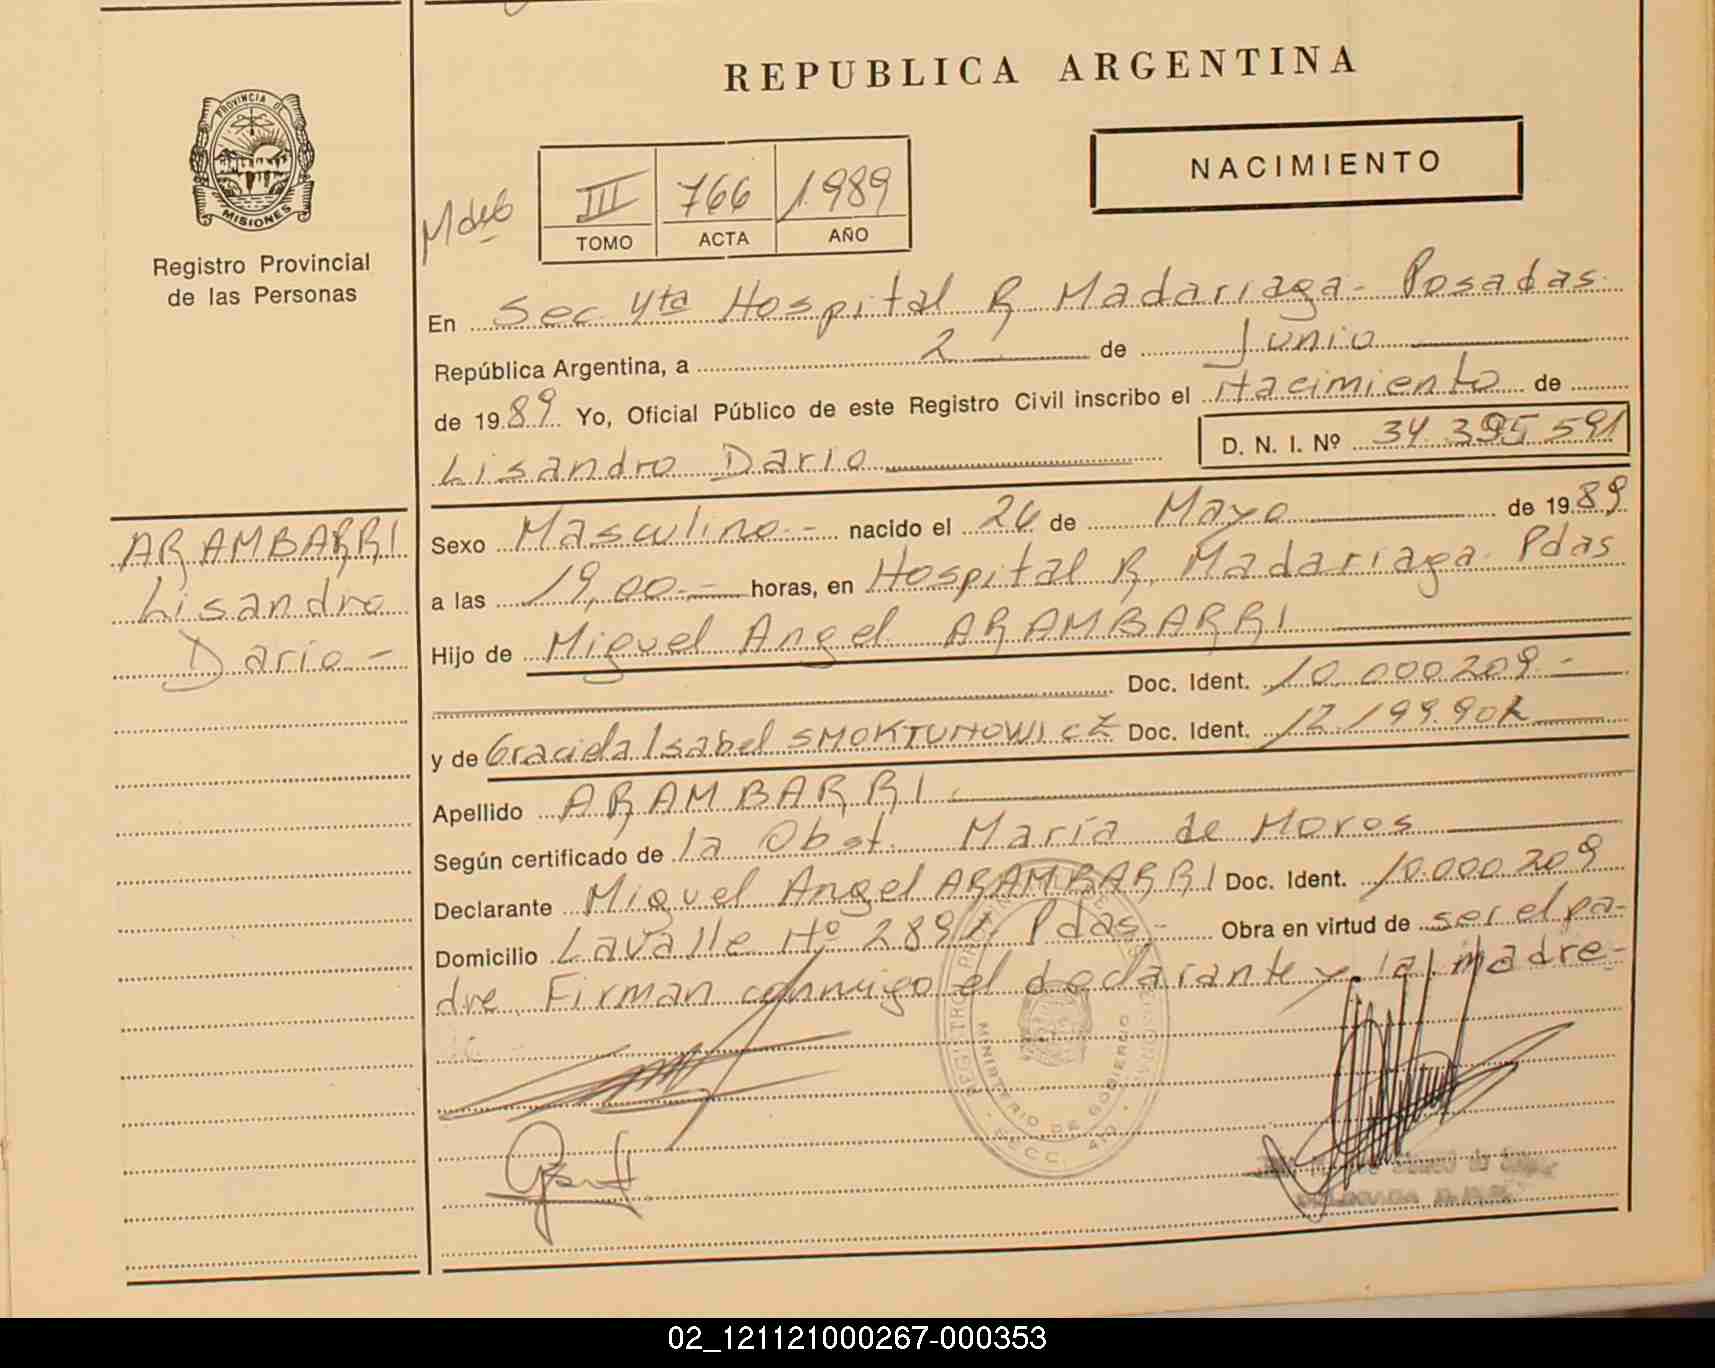 REPUBLICA ARGENTINA
PROVINCIA DE
MISIONES
Registro Provincial
de las Personas
NACIMIENTO
III 766 1.989
TOMO ACTA AÑO
En Sec 4ta Hospital R. Madariaga - Posadas
República Argentina, a 2 de Junio
de 1989 Yo, Oficial Público de este Registro Civil inscribo el Nacimiento de
Lisandro Dario D. N. I. Nº 34 395 591
ARAMBARRI
Lisandro
Dario -
Sexo Masculino - nacido el 26 de Mayo de 1989
a las 19,00 - horas, en Hospital R. Madariaga - Pdas
Hijo de Miguel Angel ARAMBARRI
Doc. Ident. 10.000209 -
y de Graciela Isabel SMOKTUNOWICZ Doc. Ident. 12.199.902
Apellido ARAMBARRI
Según certificado de la Obst. María de Moros
Declarante Miguel Angel ARAMBARRI Doc. Ident. 10.000209
Domicilio Lavalle Nº 2891 Pdas - Obra en virtud de ser el pa-
dre. Firman conmigo el declarante y la madre -
MINISTERIO DE GOBIERNO
SECC. 4ta
02_121121000267-000353